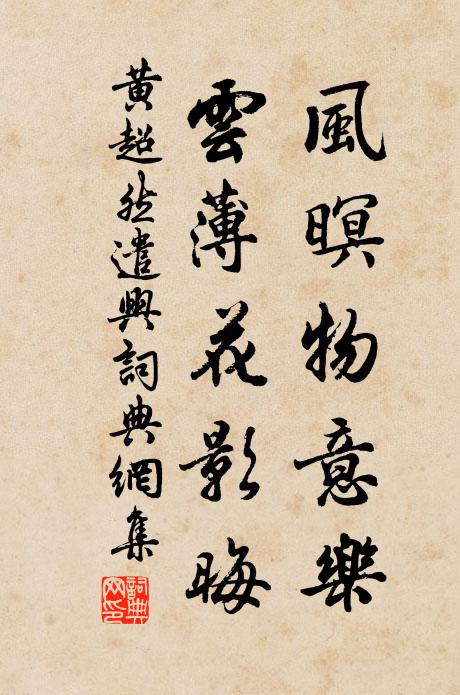 風暝物意樂
雲薄花影晦
黃超然遣興詞典網集
詞典
網印